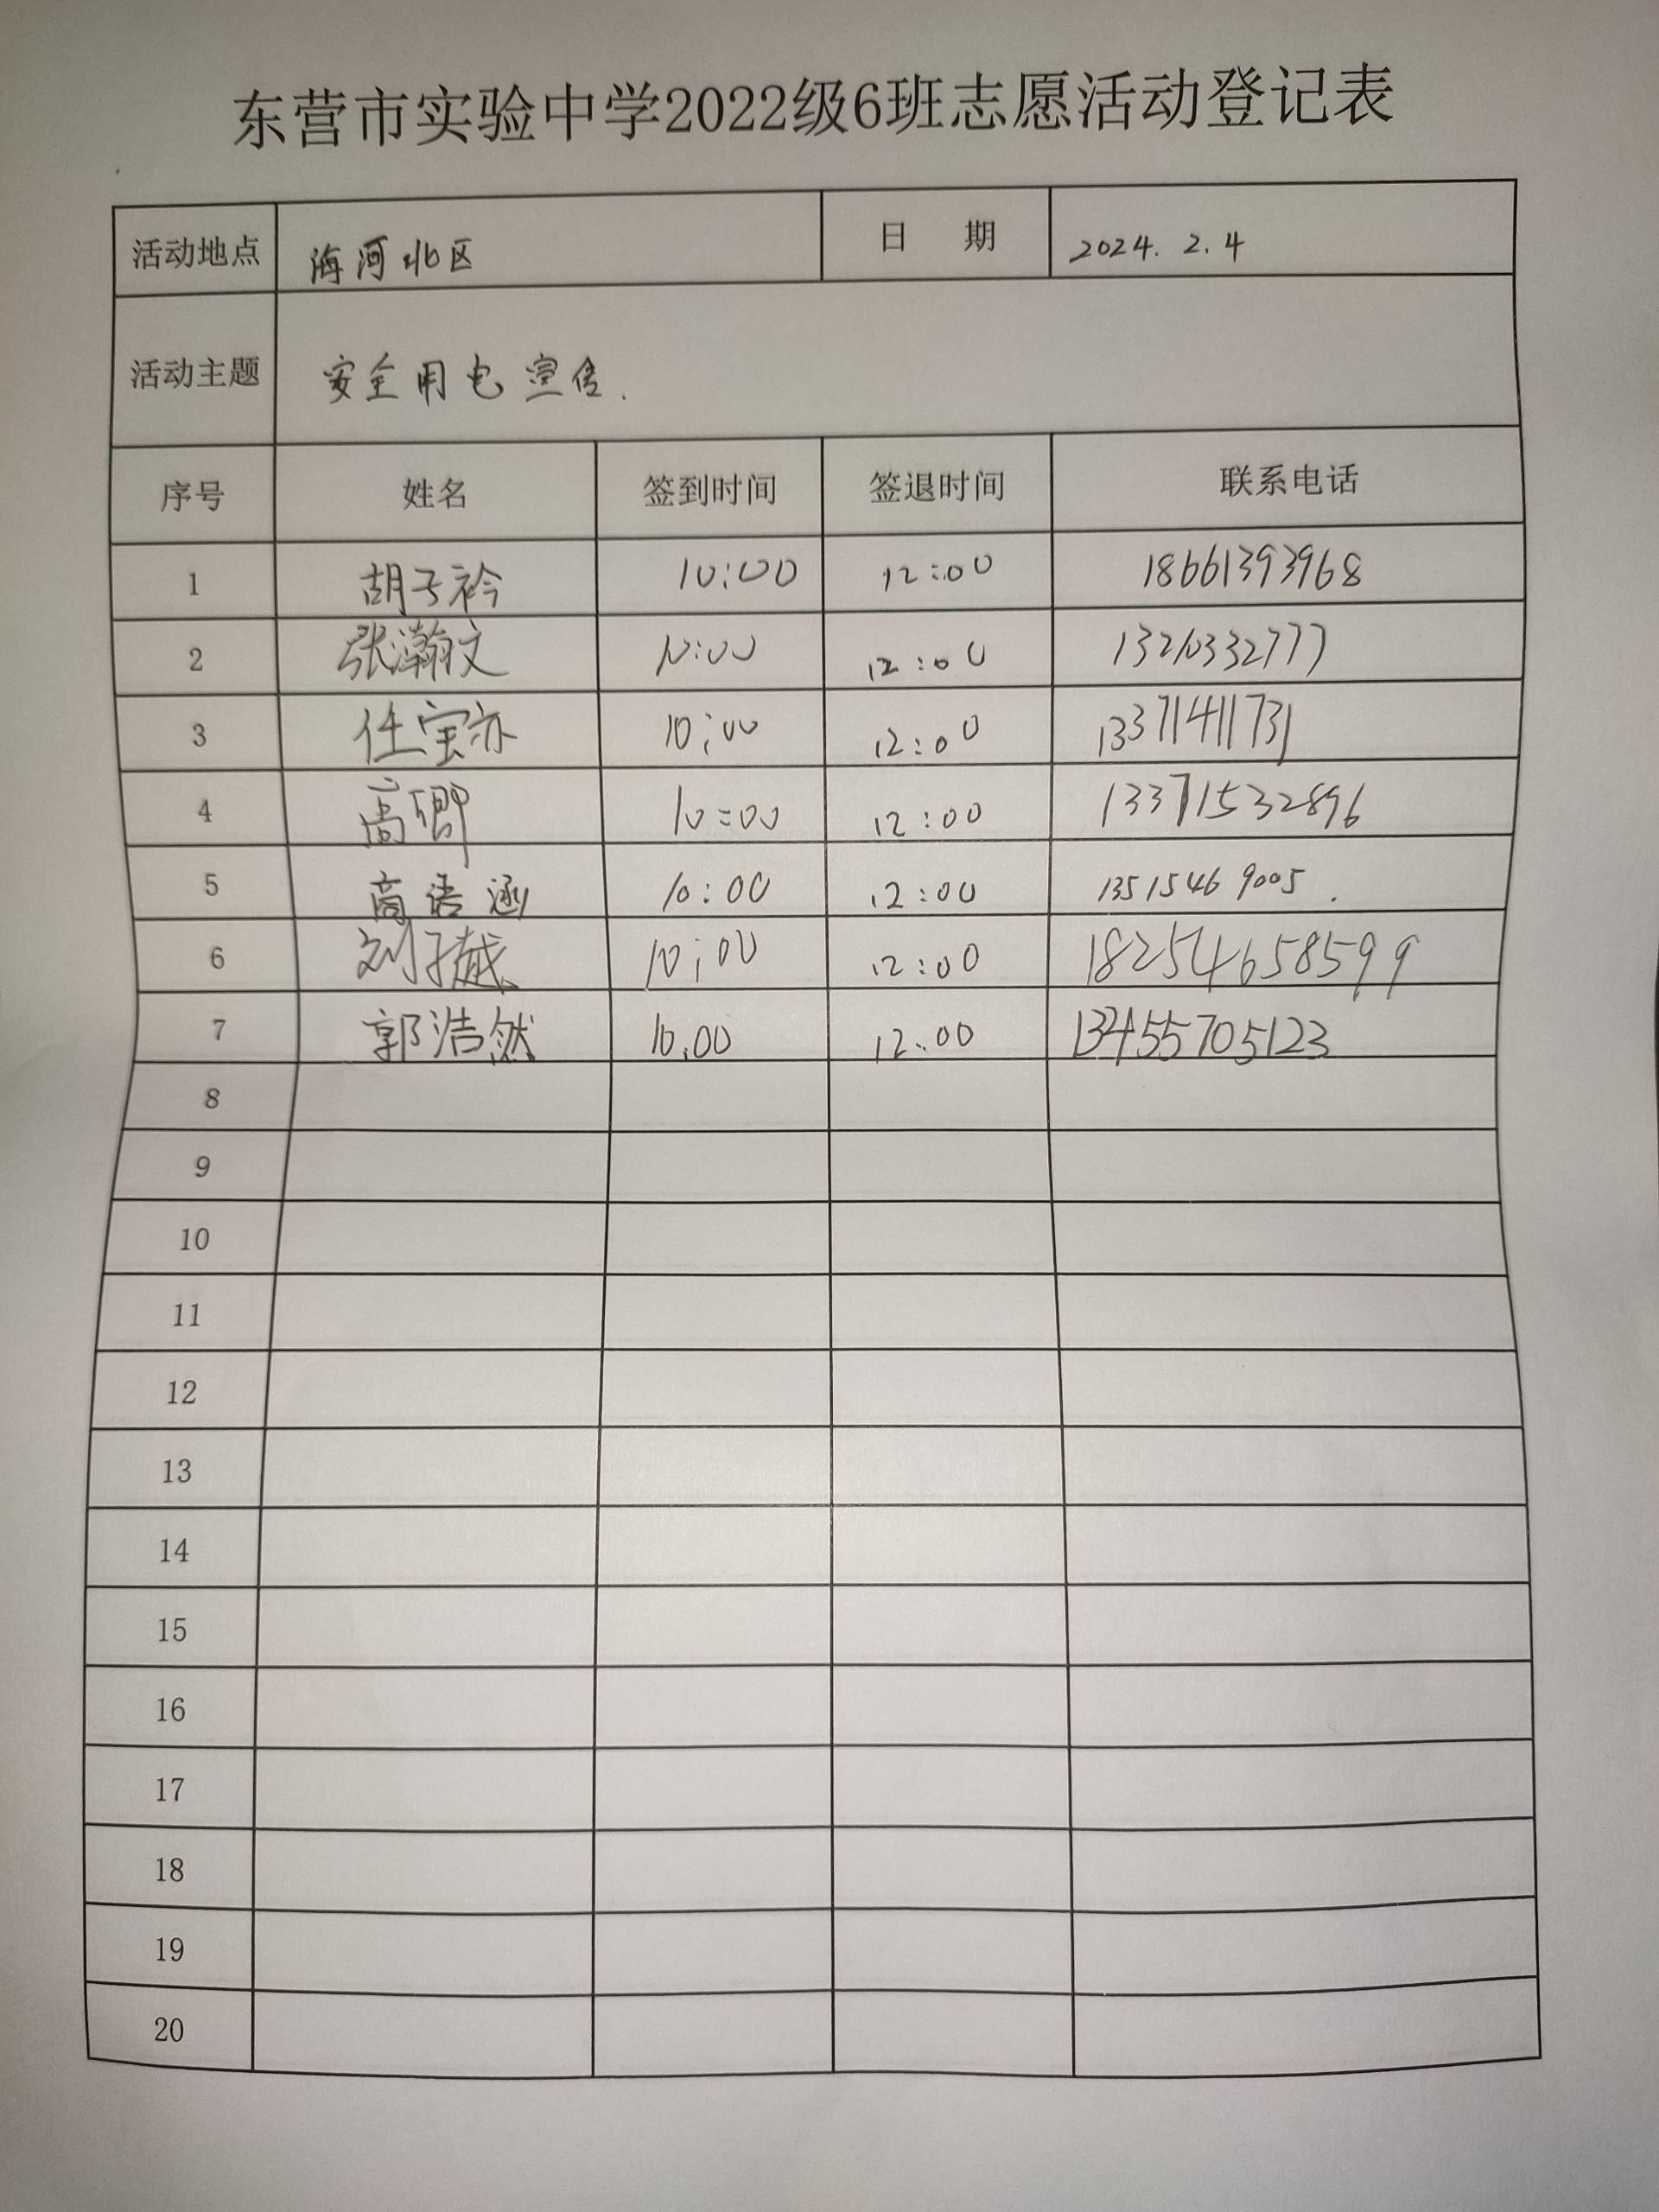 东营市实验中学2022级6班志愿活动登记表
活动地点 海河北区 日 期 2024.2.4
活动主题 安全用电宣传.
序号 姓名 签到时间 签退时间 联系电话
1 胡子衿 10:00 12:00 18661393968
2 张瀚文 10:00 12:00 13210332777
3 任宝亦 10:00 12:00 13371411731
4 高卿 10:00 12:00 13371532896
5 商语涵 10:00 12:00 13515469005.
6 刘子越 10:00 12:00 18254658599
7 郭浩然 10:00 12:00 13455705123
8
9
10
11
12
13
14
15
16
17
18
19
20